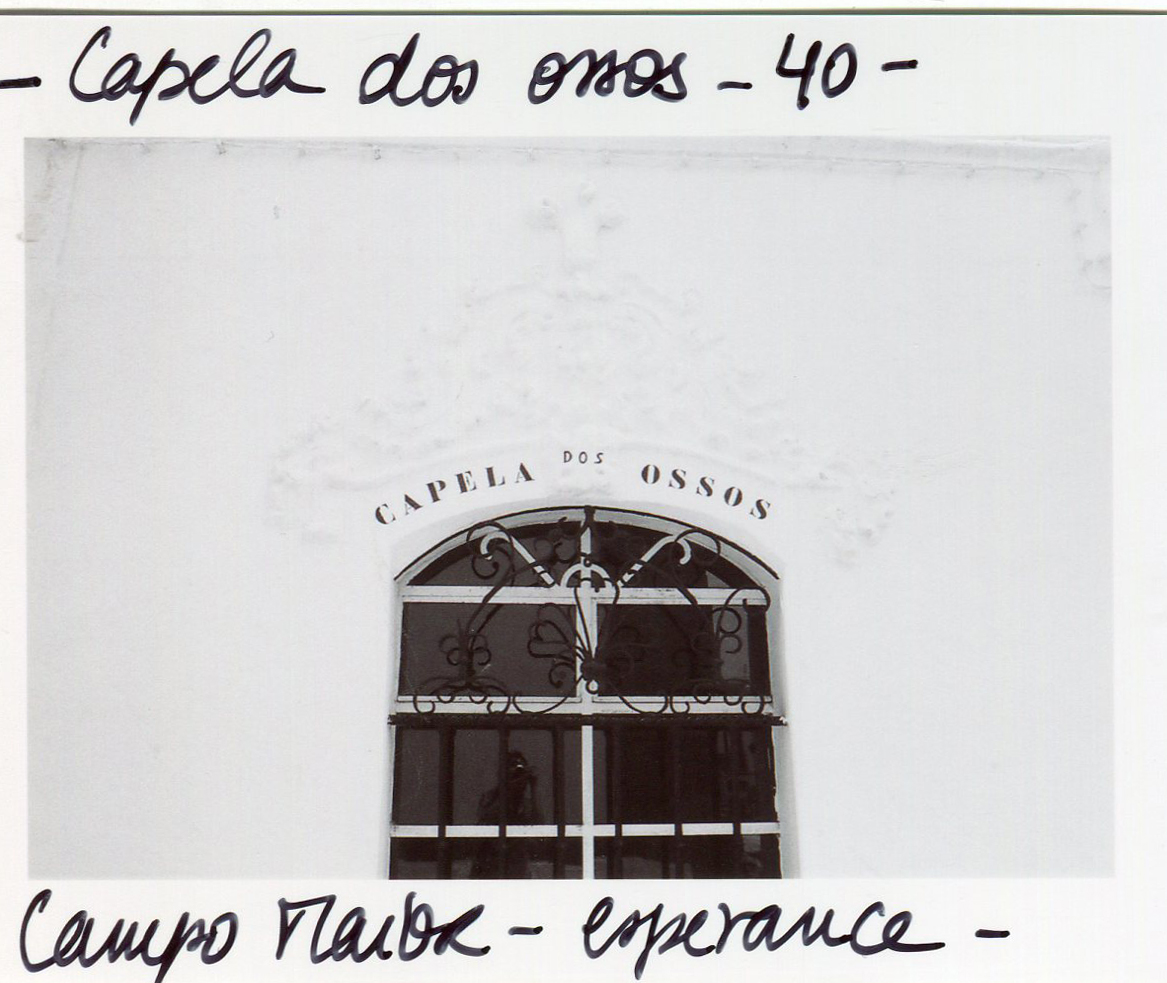 - Capela dos ossos - 40 -
CAPELA DOS OSSOS
Campo Maior - esperance -